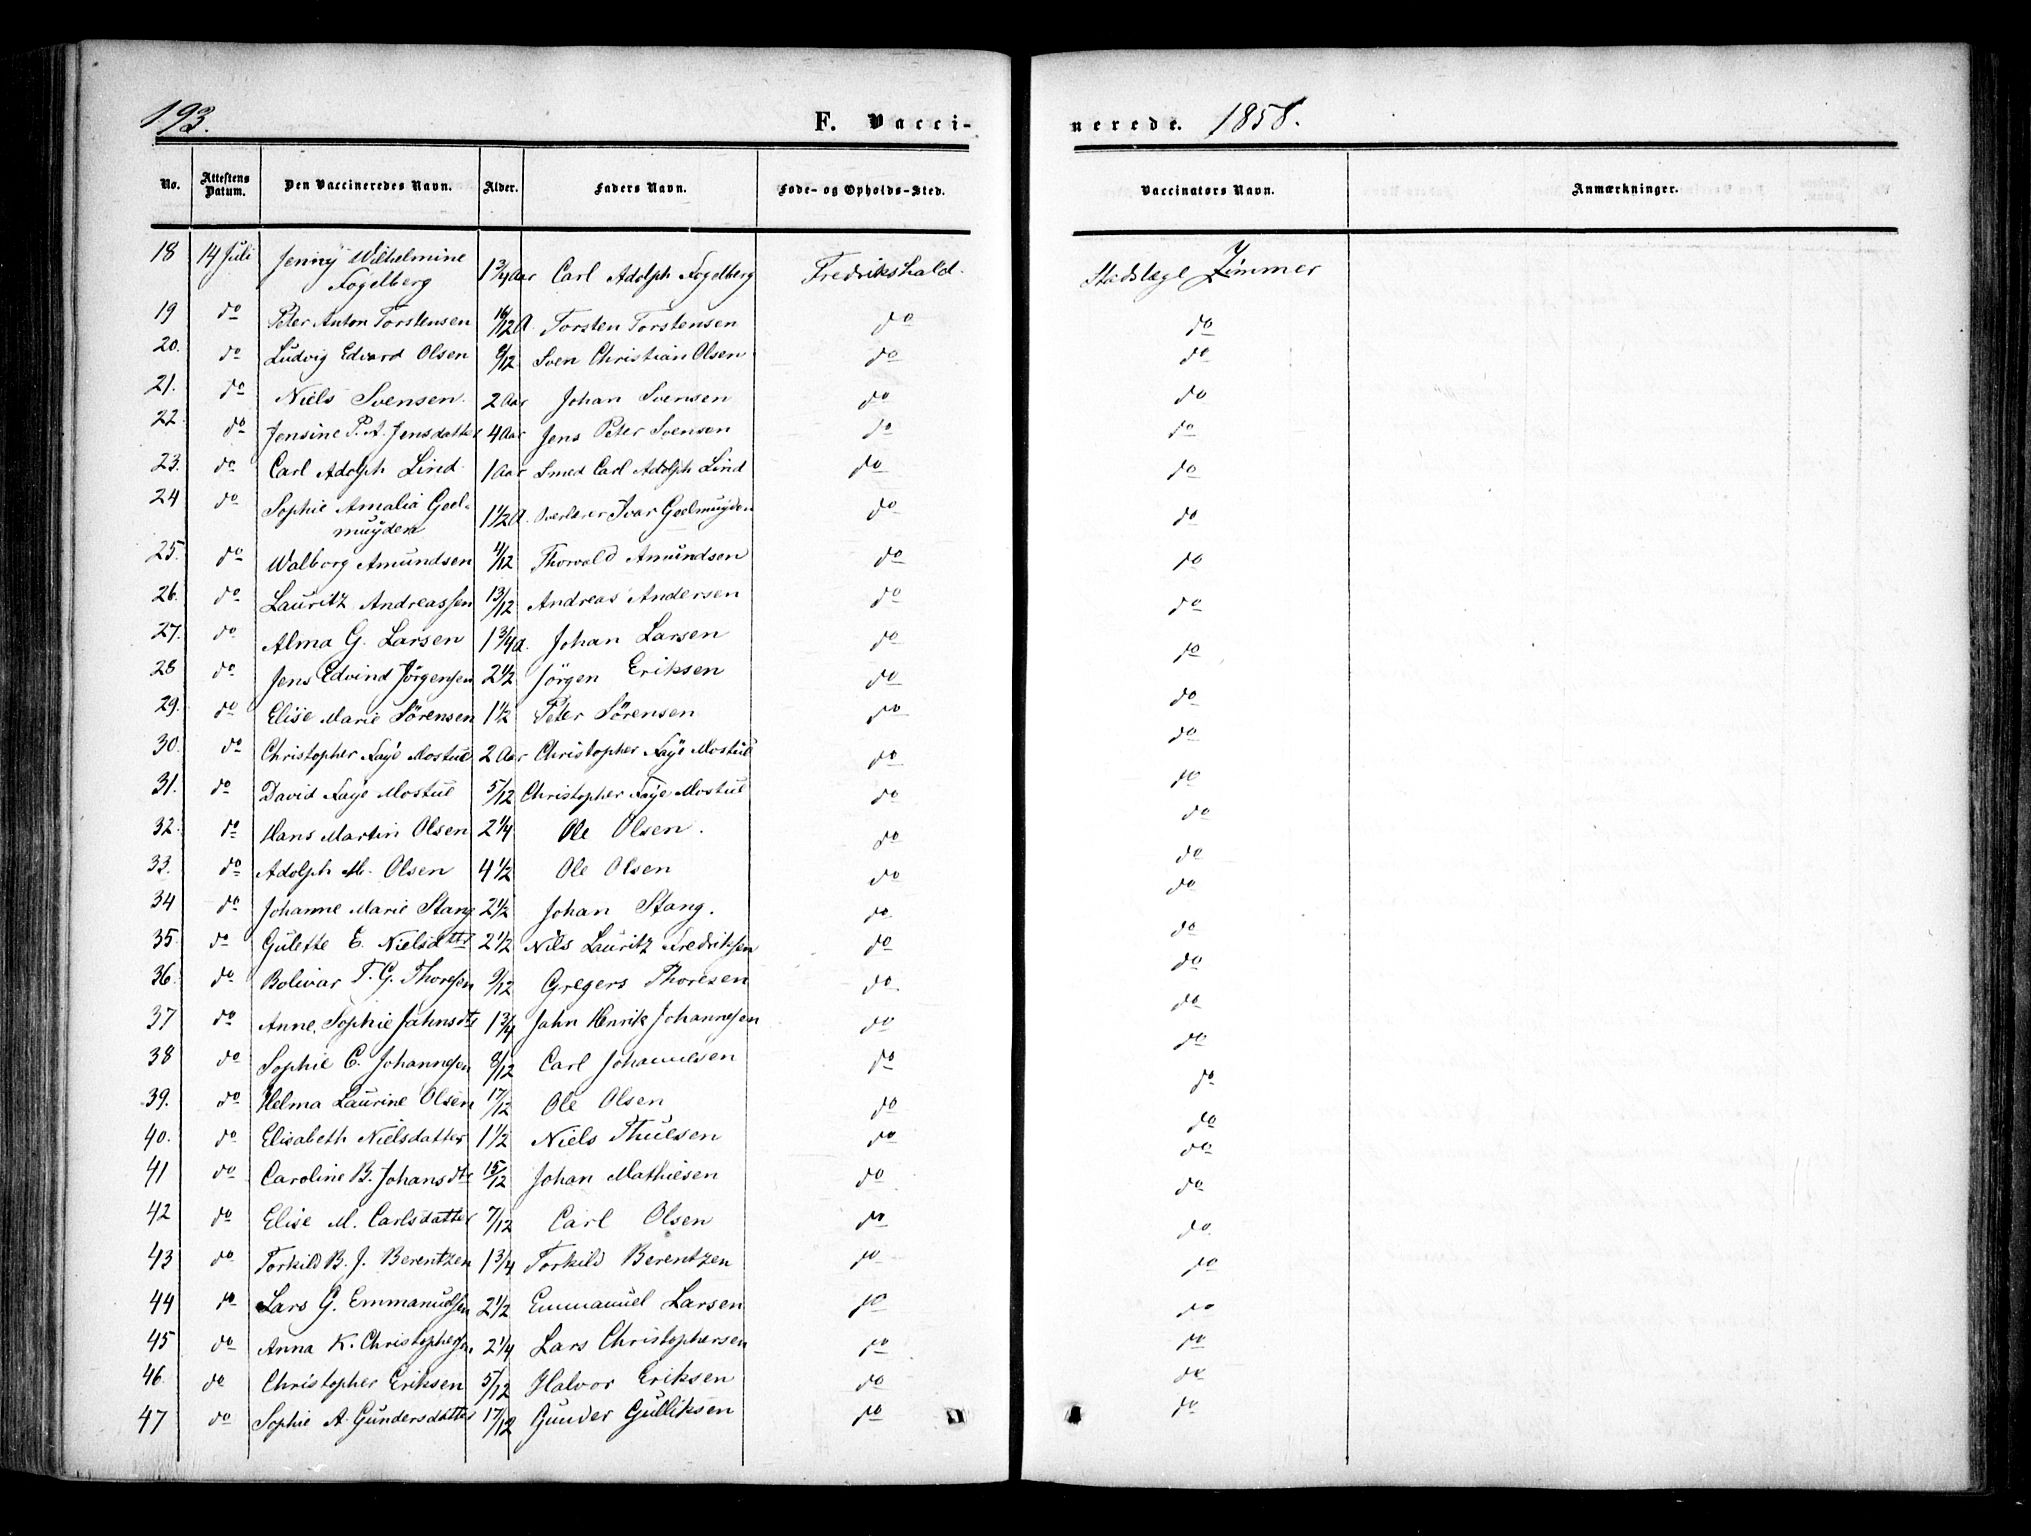 193.
F. Vacci-
nerede. 1858.
No. Attestens Datum. Den Vaccineredes Navn. Alder. Faders Navn. Føde- og Opholds-Sted. Vaccinators Navn. Anmærkninger.
18 14 Juli Jenny Wilhelmine Fogelberg 1 3/4 Aar Carl Adolph Fogelberg Fredrikshald. Stadslæge Zimmer
19 do Peter Anton Torstensen 16/12 A. Torsten Torstensen do do
20. do Ludvig Edvard Olsen 9/12 Sven Christian Olsen do do
21. do Niels Svensen. 2 Aar Johan Svensen do do
22. do Jensine P. A. Jensdatter 4 Aar Jens Peter Svensen do do
23. do Carl Adolph Lind. 1 Aar Smed Carl Adolph Lind do do
24 do Sophie Amalia Geel-
muyden 1 1/2 A. Overlærer Ivar Geelmuyden do do
25. do Walborg Amundsen 4/12 Thorvald Amundsen do do
26. do Lauritz Andreassen 13/12 Andreas Andersen do do
27. do Alma G. Larsen 1 3/4 A. Johan Larsen do do
28 do Jens Edvind Jørgensen 2 1/2 Jörgen Eriksen do do
29. do Elise Marie Sörensen 1 1/2 Peter Sörensen do do
30. do Christopher Faye Mostue 2 Aar Christopher Faye Mostue do do
31. do David Faye Mostue 5/12 Christopher Faye Mostue do do
32. do Hans Martin Olsen 2 1/4 Ole Olsen. do do
33. do Adolph M. Olsen 4 1/2 Ole Olsen do do
34 do Johanne Marie Stang 2 1/2 Johan Stang. do do
35. do Gulette E. Nielsdttr 2 1/2 Nils Lauritz Fredriksen do do
36. do Bolivar T. G. Thoresen 9/12 Gregers Thoresen do. do
37 do Anne Sophie Jahnsdtr 1 3/4 Jahn Henrik Johannesen do do
38 do Sophie C. Johannesen 8/12 Carl Johannesen do do
39. do Helma Laurine Olsen 17/12 Ole Olsen do do
40. do Elisabeth Nielsdatter 1 1/2 Niels Thuesen do do
41 do Caroline B. Johansdtr 15/12 Johan Mathiesen do do
42 do Elise M. Carlsdatter 7/12 Carl Olsen do do
43 do Torkild B. J. Berentzen 1 3/4 Torkild Berentzen do do
44 do Lars G. Emmanuelsen 2 1/2 Emmanuel Larsen do do
45 do Anna K. Christophersen 2 1/4 Lars Christophersen do do
46. do Christopher Eriksen 5/12 Halvor Eriksen do do
47 do Sophie A. Gundersdatter 17/12 Gunder Gulliksen do do